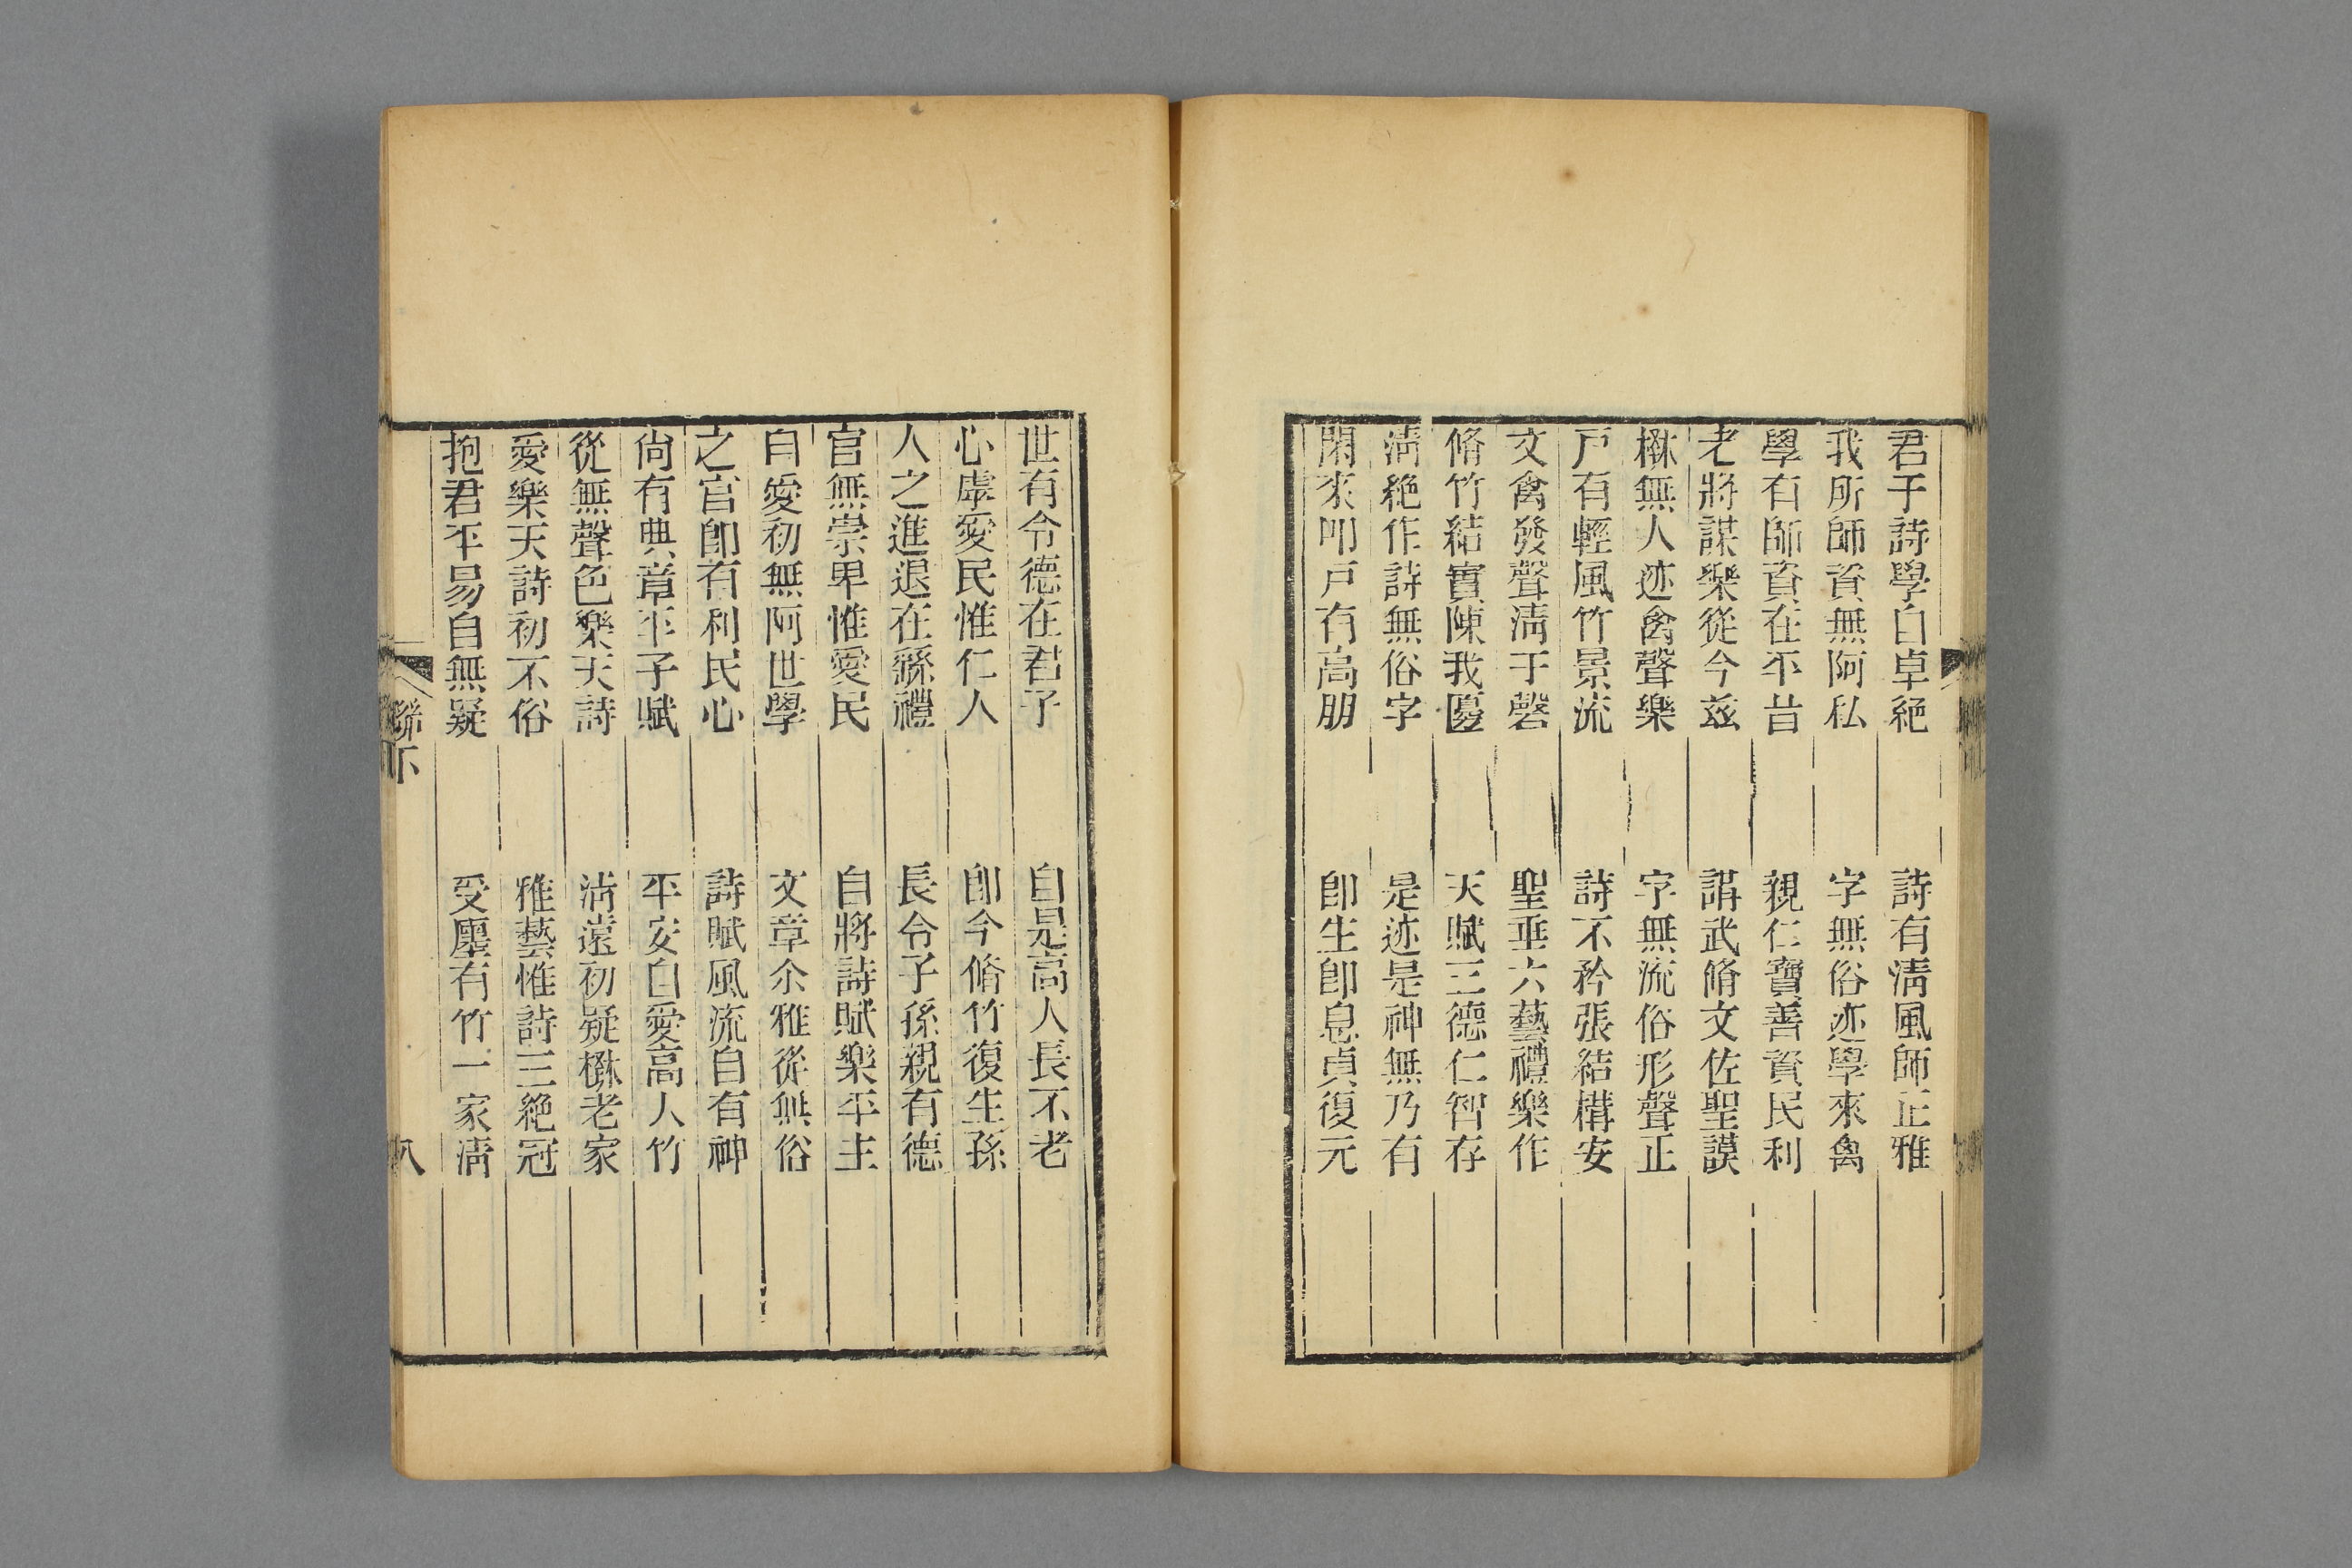 君子詩學自卓絶　詩有淸風師正雅
我所師資無阿私　字無俗迹學來禽
學有師資在平昔　親仁寶善資民利
老將謀樂從今兹　講武脩文佐聖謨
楙無人迹禽聲樂　字無流俗形聲正
戸有輕風竹景流　詩不矜張結構安
文禽發聲淸于磬　聖垂六藝禮樂作
脩竹結實陳我𠤎　天賦三德仁智存
淸絶作詩無俗字　是迹是神無乃有
閑來叩戸有高朋　卽生卽息貞復元
世有令德在君子　自是高人長不老
心虛愛民惟仁人　卽今脩竹復生孫
人之進退在繇禮　長令子孫親有德
官無崇卑惟愛民　自將詩賦樂平生
自愛初無阿世學　文章尒雅從無俗
之官卽有利民心　詩賦風流自有神
尙有典章平子賦　平安自愛高人竹
從無聲色樂天詩　淸遠初疑楙老家
愛樂天詩初不俗　雅藝惟詩三絶冠
抱君平易自無疑　受廛有竹一家淸
聯下　八